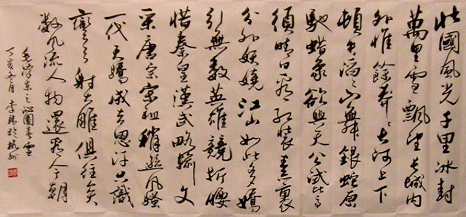 北國風光千里冰封
萬里雪飄望長城内
外惟餘莽莽大河上下
頓失滔滔山舞銀蛇原
馳蠟象欲與天公試比高
須晴日看紅裝素裹
分外妖嬈江山如此多嬌
引無數英雄競折腰
惜秦皇漢武略輸文
采唐宗宋祖稍遜風騷
一代天驕成吉思汗只識
彎弓射大雕俱往矣
數風流人物還看今朝
毛澤東沁園春雪
丁亥年月李於杭州